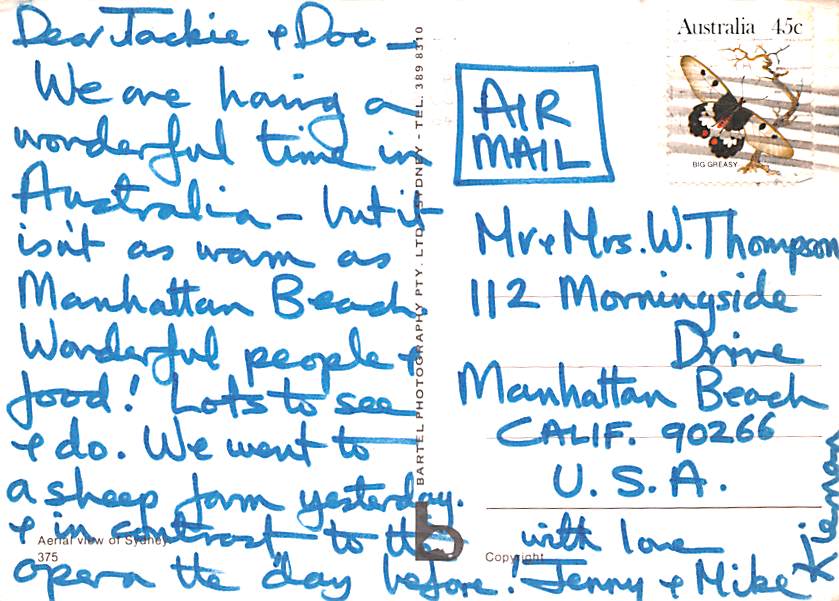 Dear Jackie & Doc —
We are having a
wonderful time in
Australia — but it
isn't as warm as
Manhattan Beach.
Wonderful people &
food! Lots to see
& do. We went to
a sheep farm yesterday.
& in contrast to the
opera the day before!
Aerial view of Sydney
375
BARTEL PHOTOGRAPHY PTY. LTD. SYDNEY - TEL. 389 8310
b
Copyright
Australia 45c
BIG GREASY
AIR
MAIL
Mr & Mrs. W. Thompson
112 Morningside
Drive
Manhattan Beach
CALIF. 90266
U.S.A.
with love
Jenny & Mike